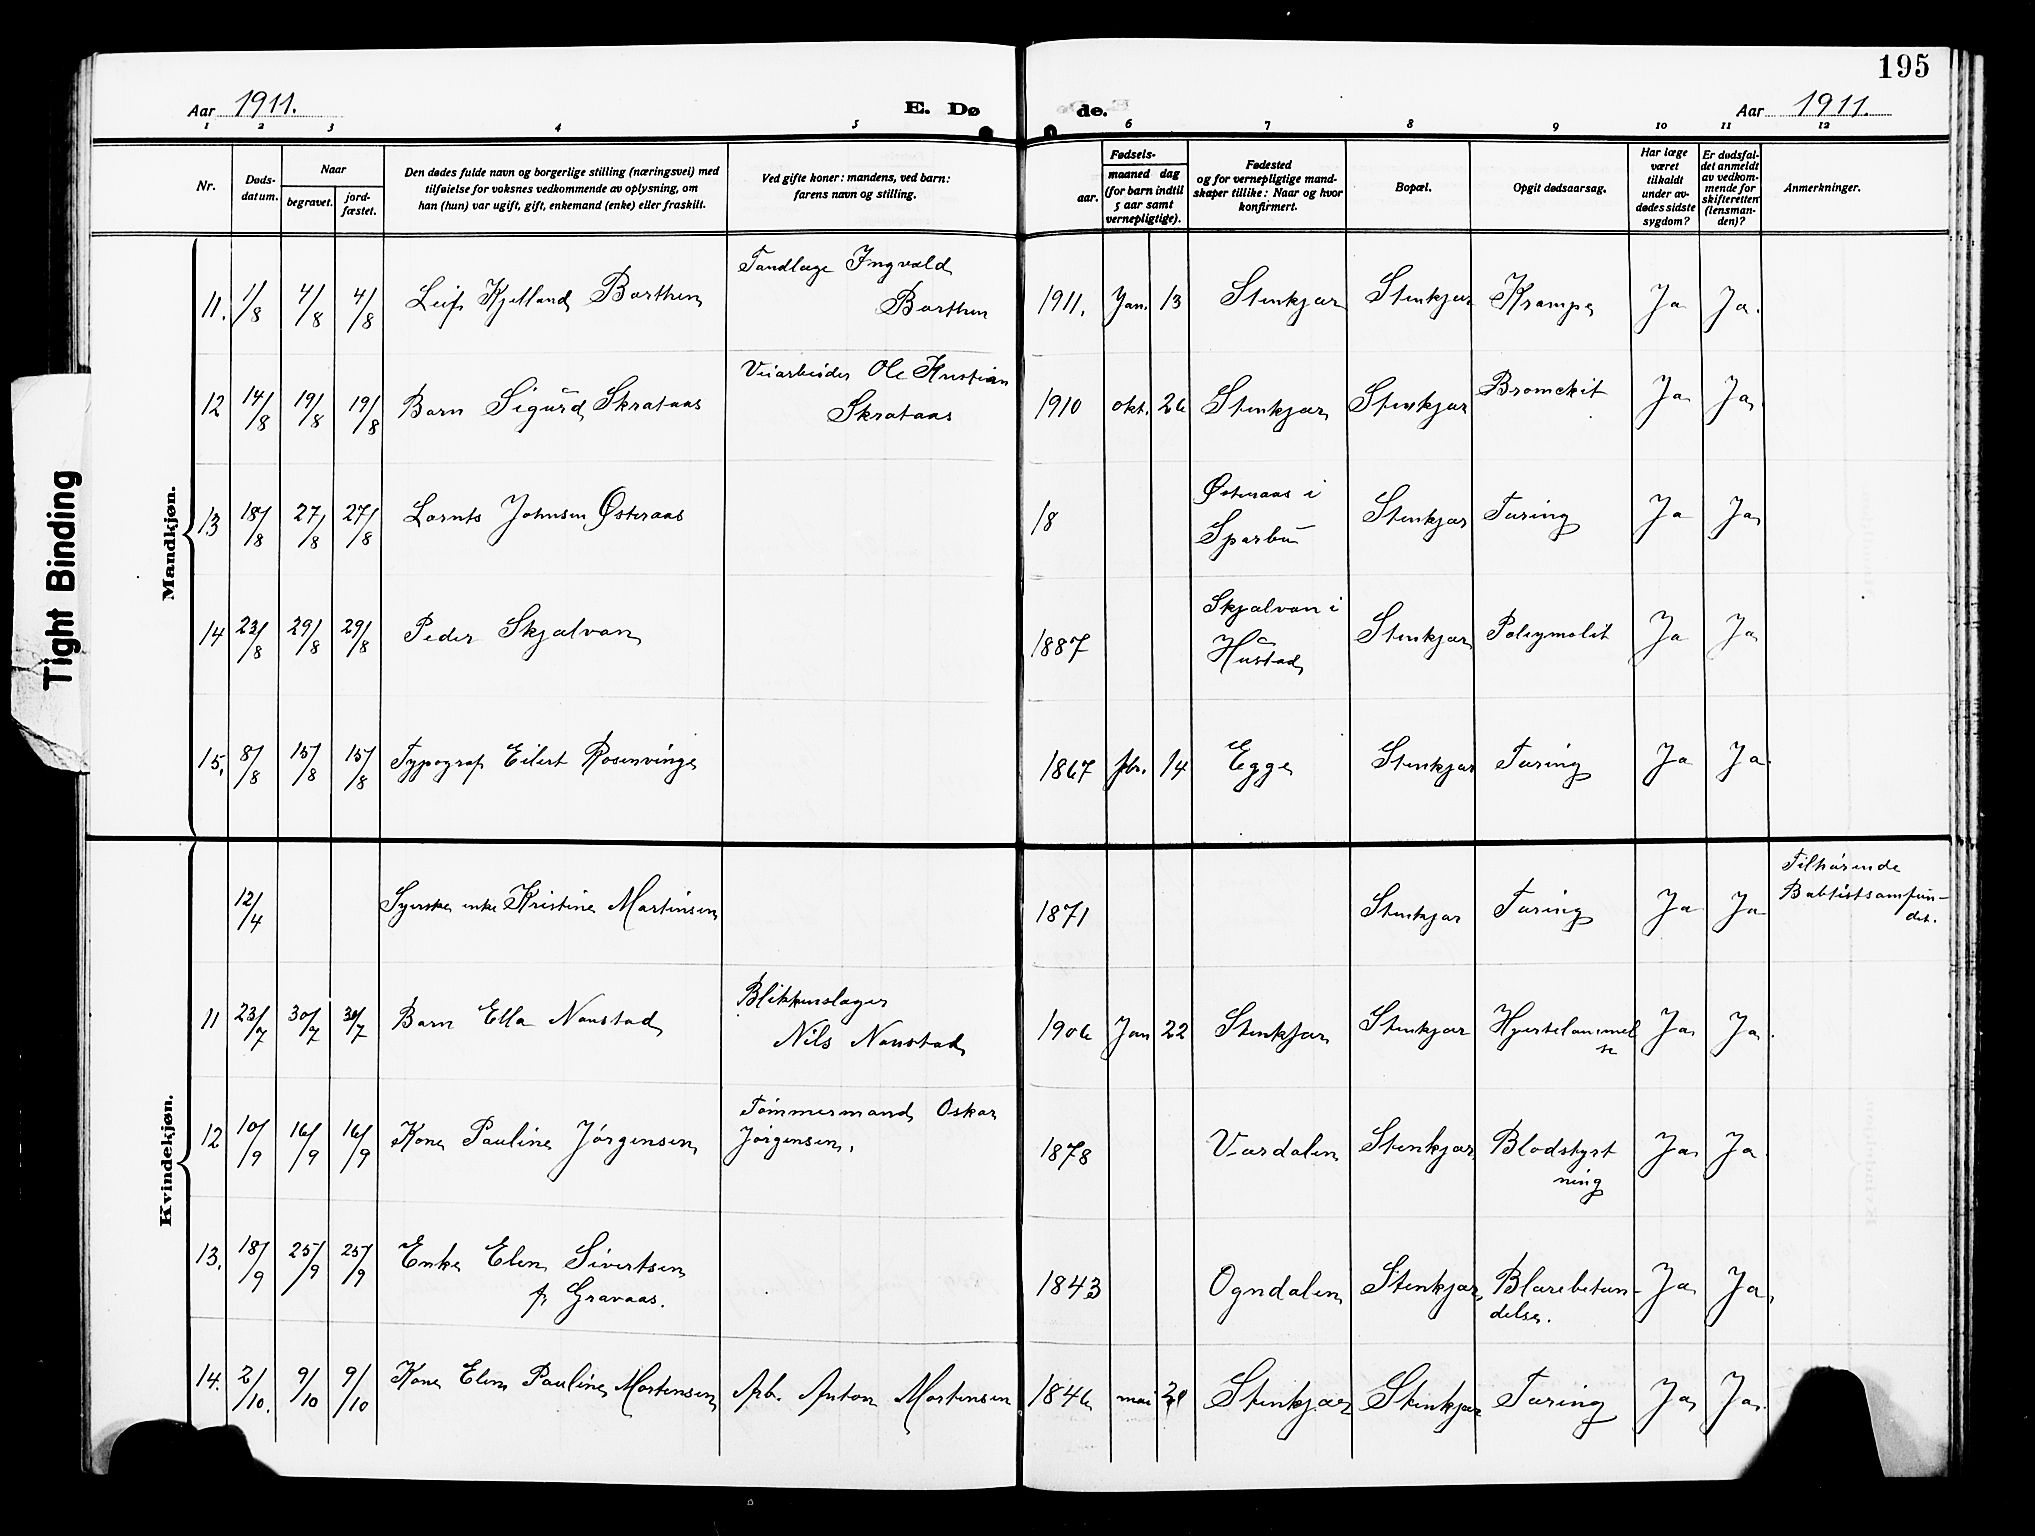 195
Aar 1911. E. Dø de. Aar 1911.
1 2 3 4 5 6 7 8 9 10 11 12
Nr.
Døds-
datum.
Naar
begravet.
jord-
fæstet.
Den dødes fulde navn og borgerlige stilling (næringsvei) med
tilføielse for voksnes vedkommende av oplysning, om
han (hun) var ugift, gift, enkemand (enke) eller fraskilt.
Ved gifte koner: mandens, ved barn:
farens navn og stilling.
aar.
Fødsels-
maaned dag
(for barn indtil
5 aar samt
vernepligtige).
Fødested
og for vernepligtige mand-
skaper tillike: Naar og hvor
konfirmert.
Bopæl.
Opgit dødsaarsag.
Har læge
været
tilkaldt
under av-
dødes sidste
sygdom?
Er dødsfal-
det anmeldt
av vedkom-
mende for
skifteretten
(lensman-
den)?
Anmerkninger.
Tight Binding
Mandkjøn.
11. 1/8 4/8 4/8 Leif Kjelland Borthen Tandlæge Ingvald
Borthen 1911. Jan. 13 Stenkjær Stenkjær Krampe Ja Ja.
12 14/8 19/8 19/8 Barn Sigurd Skrataas Veiarbeider Ole Kristian
Skrataas 1910 okt. 26 Stenkjær Stenkjær Bronckit Ja Ja.
13 18/8 27/8 27/8 Lornts Johnsen Østeraas 18 Østeraas i
Sparbu Stenkjær Tæring Ja Ja
14 23/8 29/8 29/8 Peder Skjelvan 1887 Skjelvan i
Hustad Stenkjær Poliymolit Ja Ja
15. 8/8 15/8 15/8 Typograf Eilert Rosenvinge 1867 febr. 14 Egge Stenkjær Tæring Ja Ja.
Kvindekjøn.
12/4 Syerske enke Kristine Martinsen 1871 Stenkjær Tæring Ja Ja Tilhørende
Babtistsamfun-
det.
11 23/7 30/7 30/7 Barn Ella Naustad Blikkenslager
Nils Naustad 1906 Jan 22 Stenkjær Stenkjær Hjertelammel
se Ja Ja.
12 10/9 16/9 16/9 Kone Pauline Jørgensen Tømmermand Oskar
Jørgensen. 1878 Værdalen Stenkjær Blodstyrt
ning Ja Ja
13. 18/9 25/9 25/9 Enke Elen Sivertsen
f. Gravaas. 1843 Ogndalen Stenkjær Blærebetæn-
delse. Ja Ja
14. 2/10. 9/10 9/10 Kone Elen Pauline Mortensen Arb. Anton Mortensen 1846 mai Stenkjær Stenkjær Tæring Ja Ja.